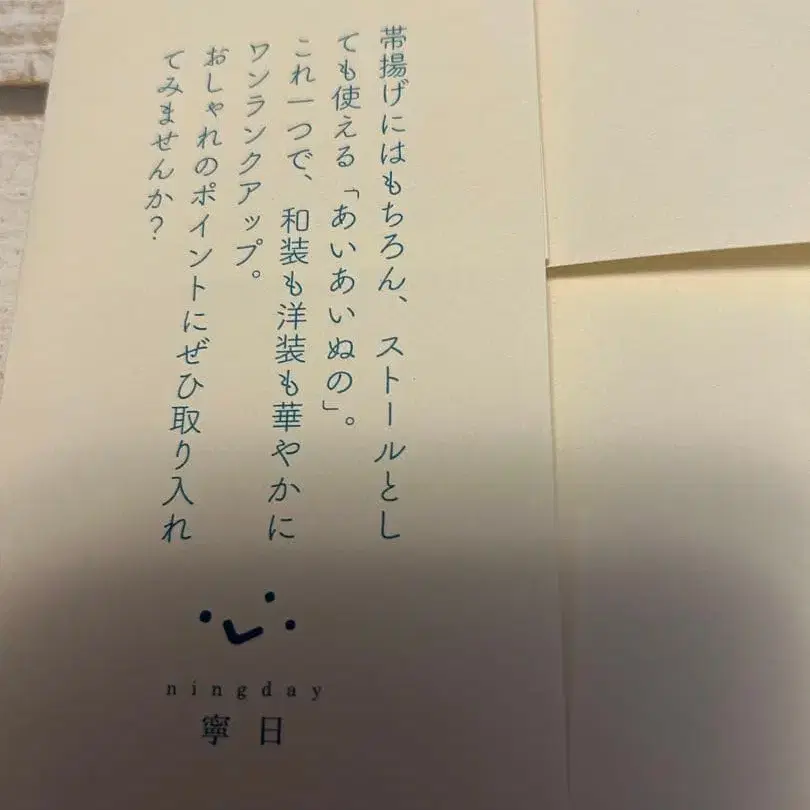 帯揚げにはもちろん、ストールとし
ても使える「あいあいぬの」。
これ一つで、和装も洋装も華やかに
ワンランクアップ。
おしゃれのポイントにぜひ取り入れ
てみませんか？
ningday
寧日